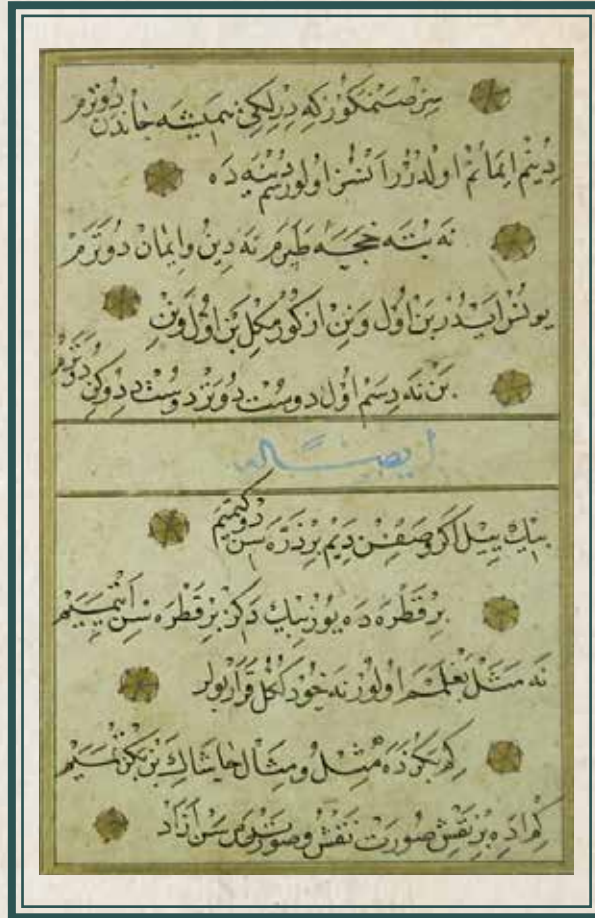 سز صنمكوز كه ديرلكي هميشه جاندن دوترم
دينم ايمانم اولدرر آنسز اولورسم دنيه ده
نه بته خچه طپرم نه دين وايمان دوترم
يونس ايدر بن اول ونن از كورمكل بن اول ونن
بن نه دسم اول دوست دوتر دوست ديدوكن دوترم
ايضا له
بيك ييل اكر وصفن ديم بر ذره سن
بر قطره ده يوز بيك دكز بر قطره سن
نه مثل بغلم اولور نه خود ككل قرار بولر
كم بكزده مثل ومثال حاشاك بز بكزتميم
كم ايده بز نقش صورت نقش وصورت سن آزاد